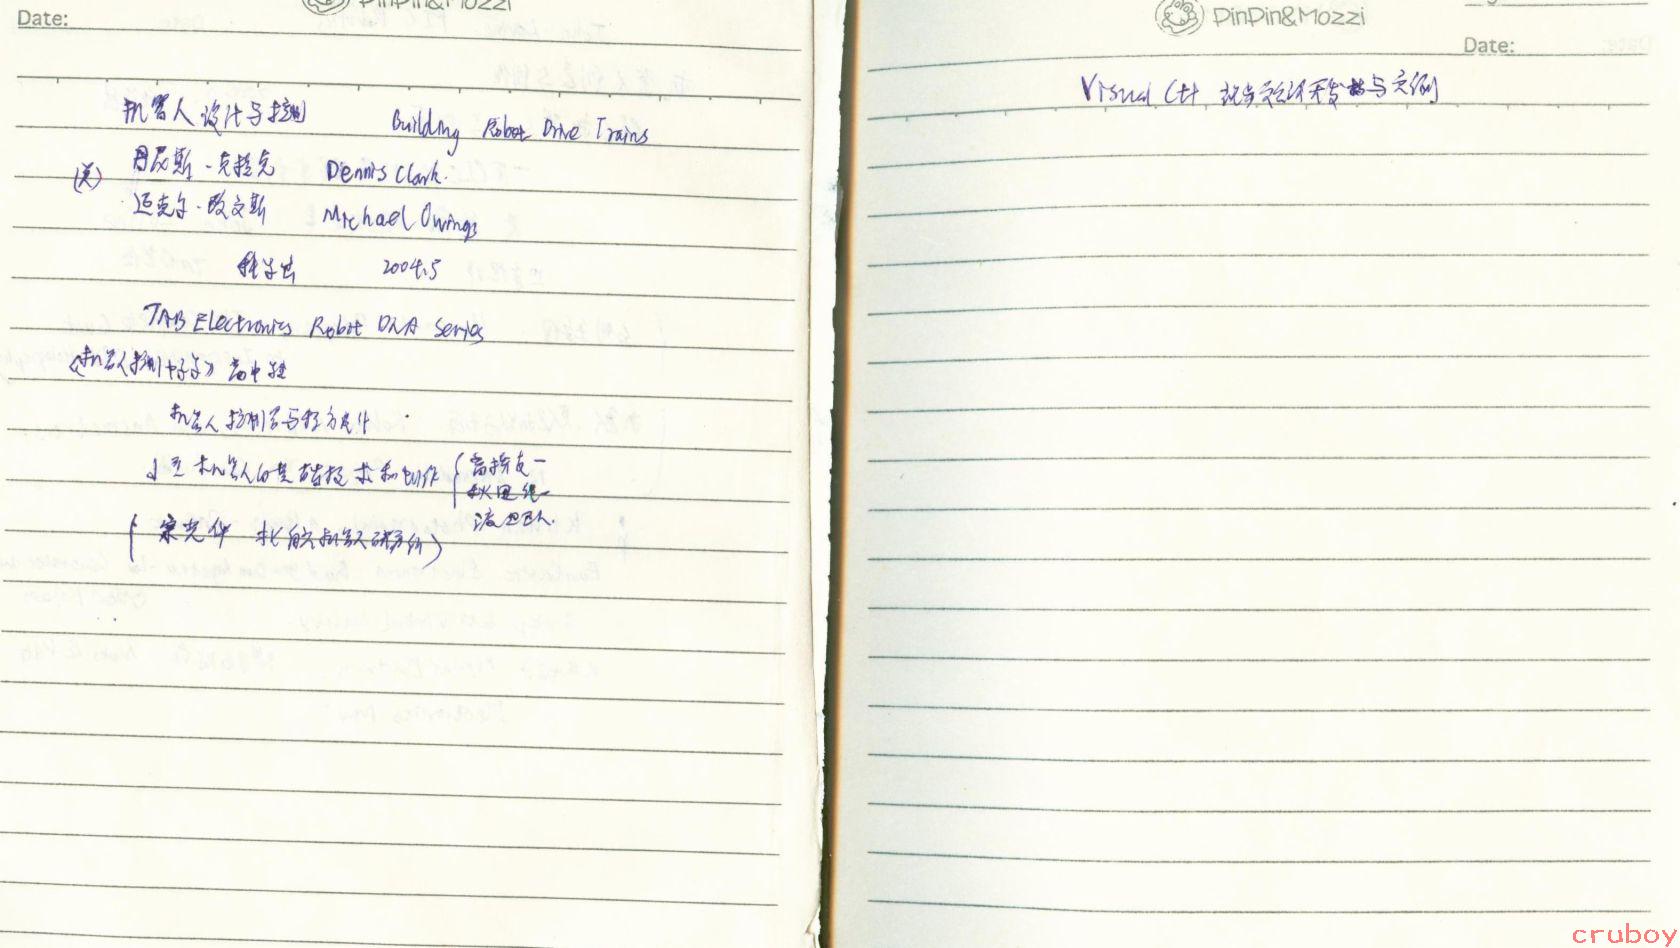 PinPin&Mozzi
Date:
机器人设计与控制 Building Robot Drive Trains
(美) 丹尼斯·克拉克 Dennis Clark.
迈克尔·欧文斯 Michael Owings
科学出 2004.5
TAB Electronics Robot DNA Series
《机器人控制 高中
机器人控制
小型机器人的基础技术和制作
宗光华 北航机器人研究所)
PinPin&Mozzi
Date:
Visual C++ 开发 与实例
cruboy